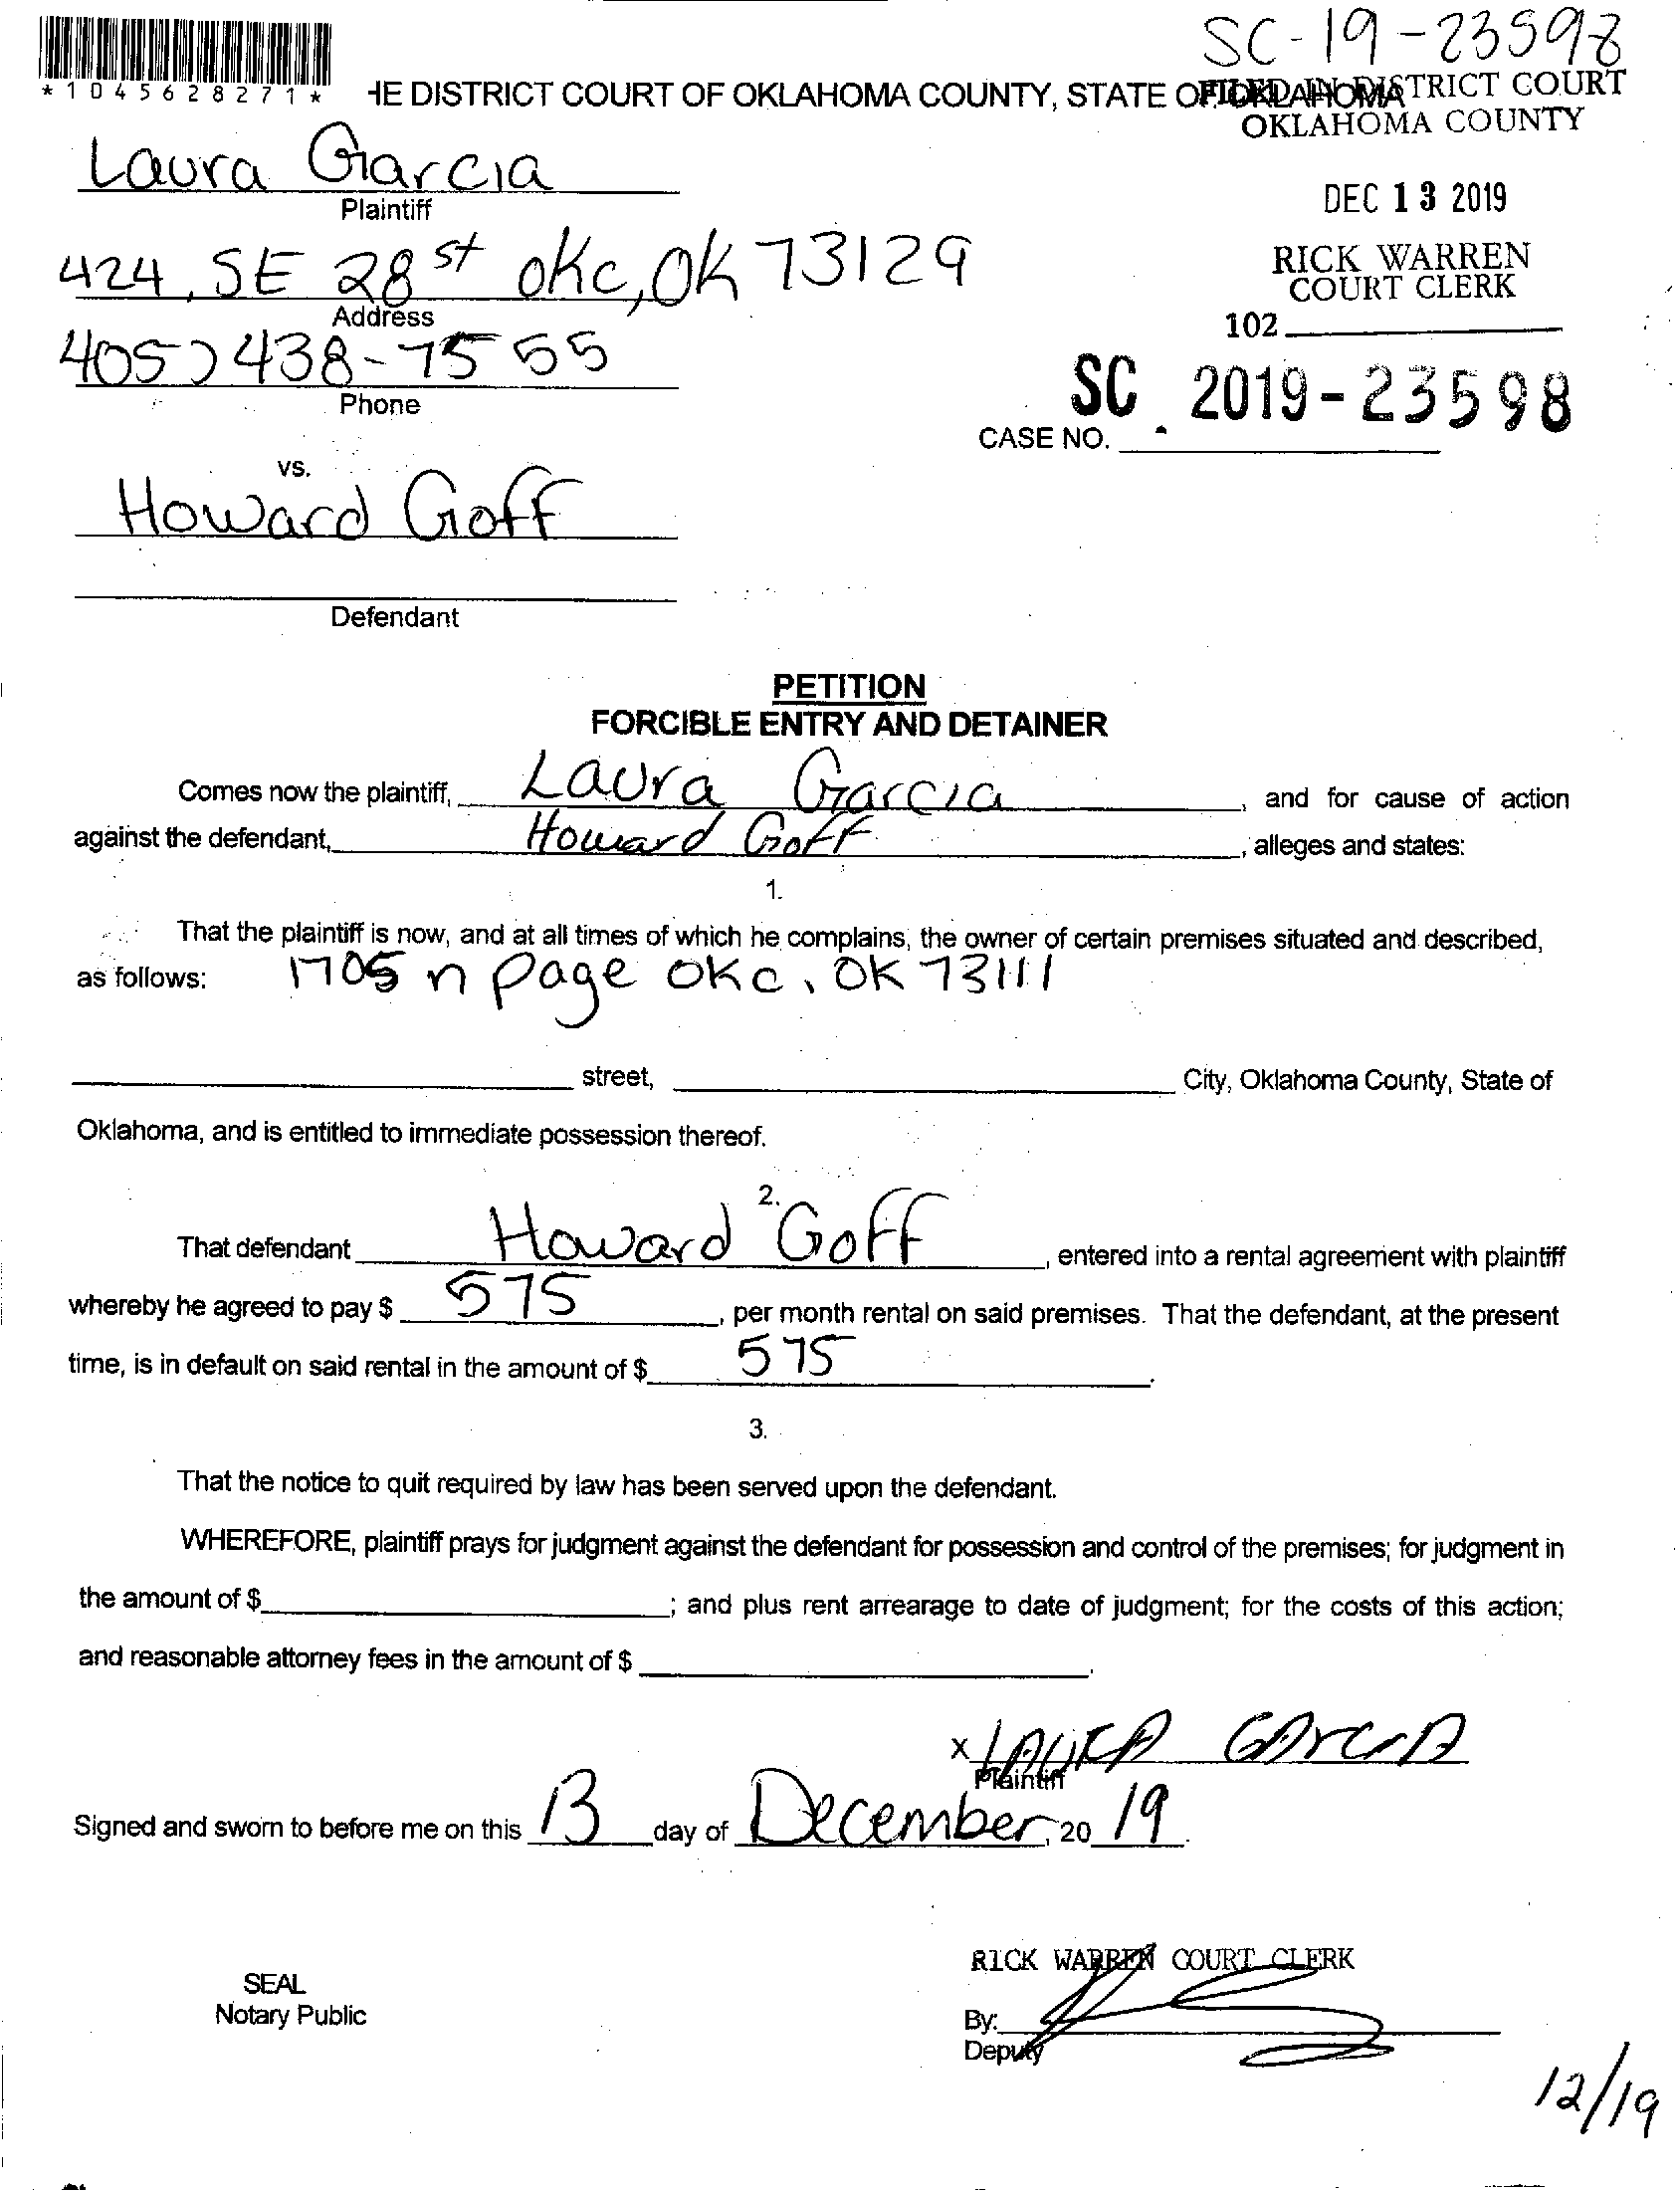 SC-19-23598
*1045628271*
HE DISTRICT COURT OF OKLAHOMA COUNTY, STATE OF OKLAHOMA
FILED IN DISTRICT COURT
OKLAHOMA COUNTY
Laura Garcia
Plaintiff
DEC 13 2019
424, SE 28 st okc, OK 73129
Address
RICK WARREN
COURT CLERK
102
405) 438-7555
Phone
SC 2019-23598
CASE NO.
vs.
Howard Goff
Defendant
PETITION
FORCIBLE ENTRY AND DETAINER
Comes now the plaintiff, Laura Garcia, and for cause of action
against the defendant, Howard Goff, alleges and states:
1.
That the plaintiff is now, and at all times of which he complains, the owner of certain premises situated and described,
as follows: 1705 n page okc, OK 73111
street, City, Oklahoma County, State of
Oklahoma, and is entitled to immediate possession thereof.
2.
That defendant Howard Goff, entered into a rental agreement with plaintiff
whereby he agreed to pay $ 575, per month rental on said premises. That the defendant, at the present
time, is in default on said rental in the amount of $ 575.
3.
That the notice to quit required by law has been served upon the defendant.
WHEREFORE, plaintiff prays for judgment against the defendant for possession and control of the premises; for judgment in
the amount of $ ; and plus rent arrearage to date of judgment; for the costs of this action;
and reasonable attorney fees in the amount of $ .
x LAURA GArciA
Plaintiff
Signed and sworn to before me on this 13 day of December, 20 19.
RICK WARREN COURT CLERK
SEAL
Notary Public
By:
Deputy
12/19